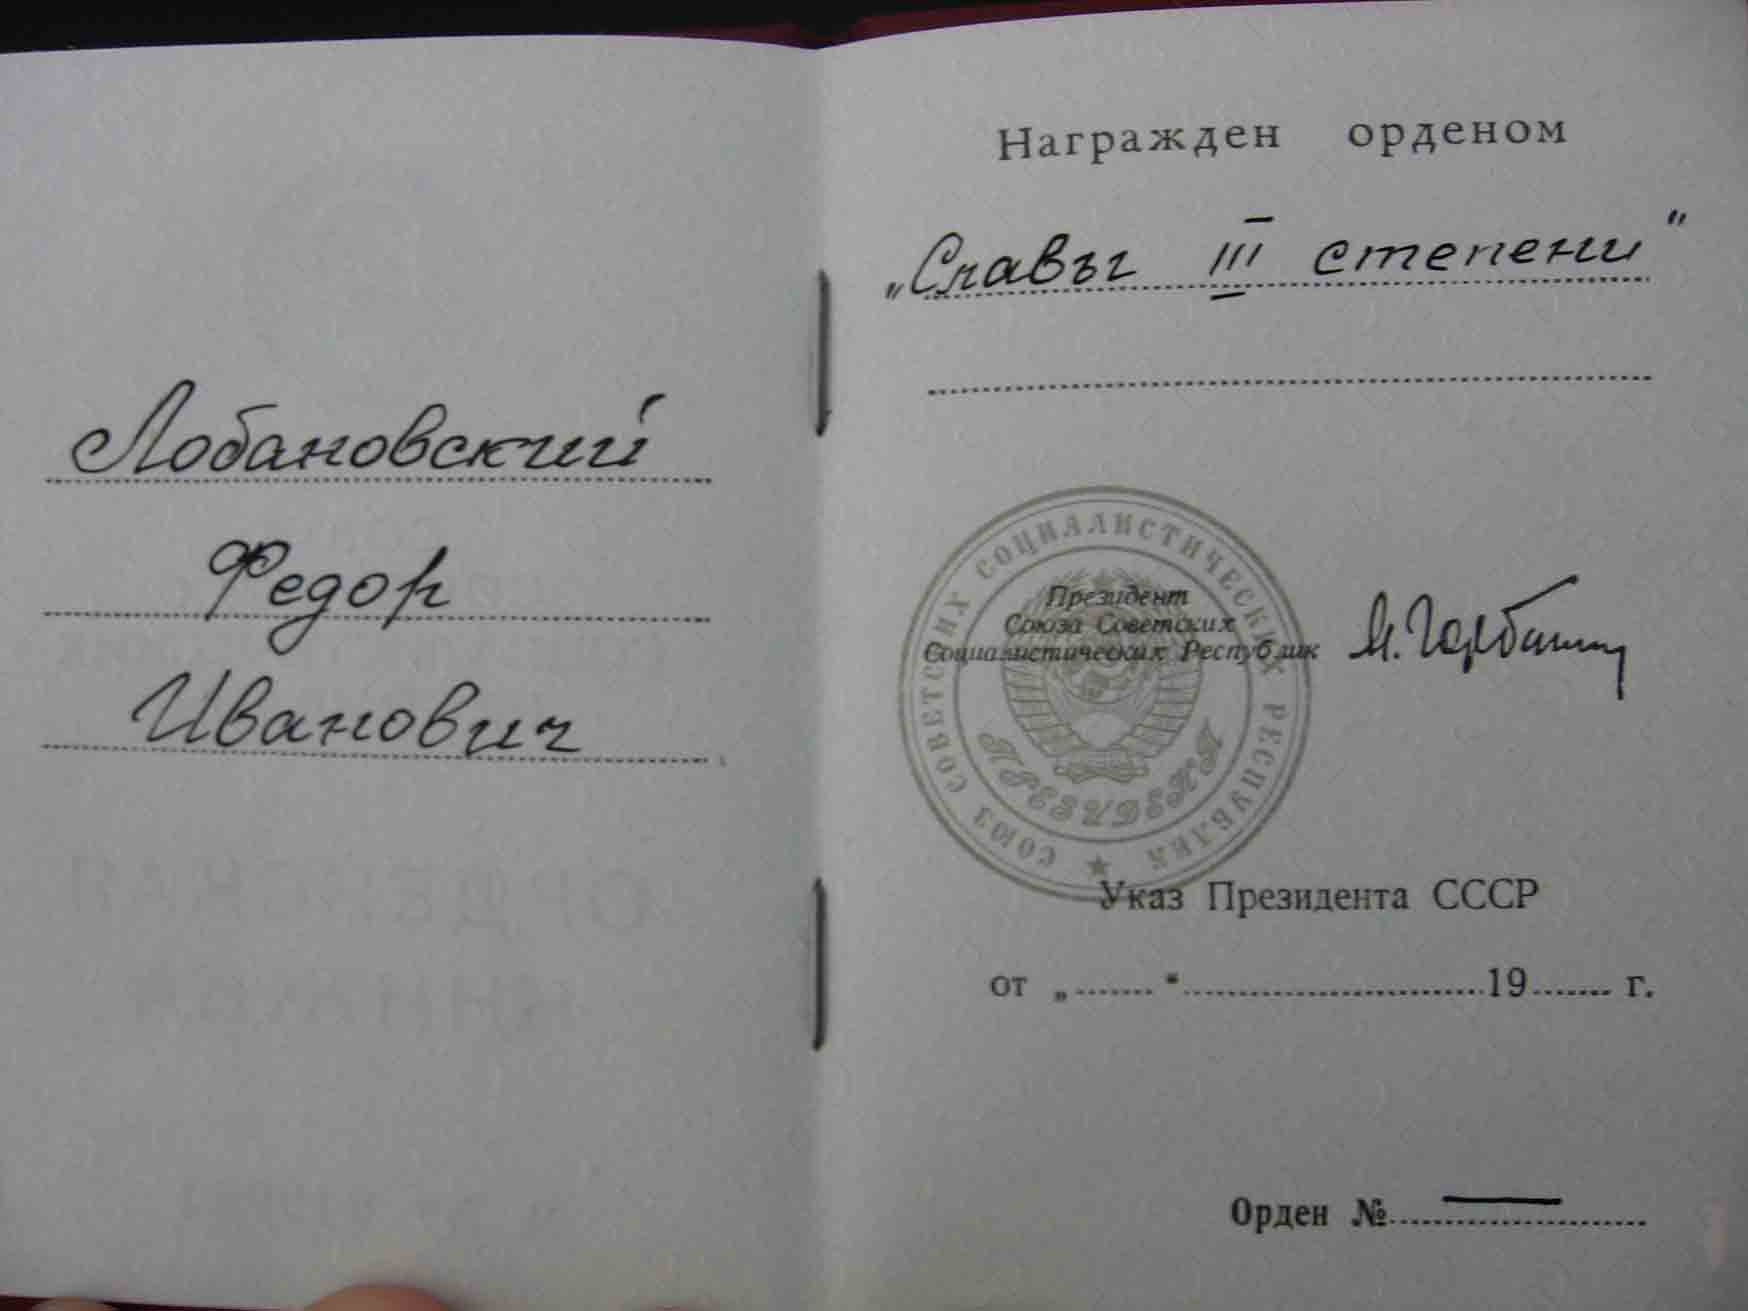 Лобановский
Федор
Иванович
Награжден орденом
„Славы III степени“
Президент
Союза Советских
Социалистических Республик
М. Горбачев
СОЮЗ СОВЕТСКИХ СОЦИАЛИСТИЧЕСКИХ РЕСПУБЛИК
ПРЕЗИДЕНТ
Указ Президента СССР
от „........“..............................19........ г.
Орден № —